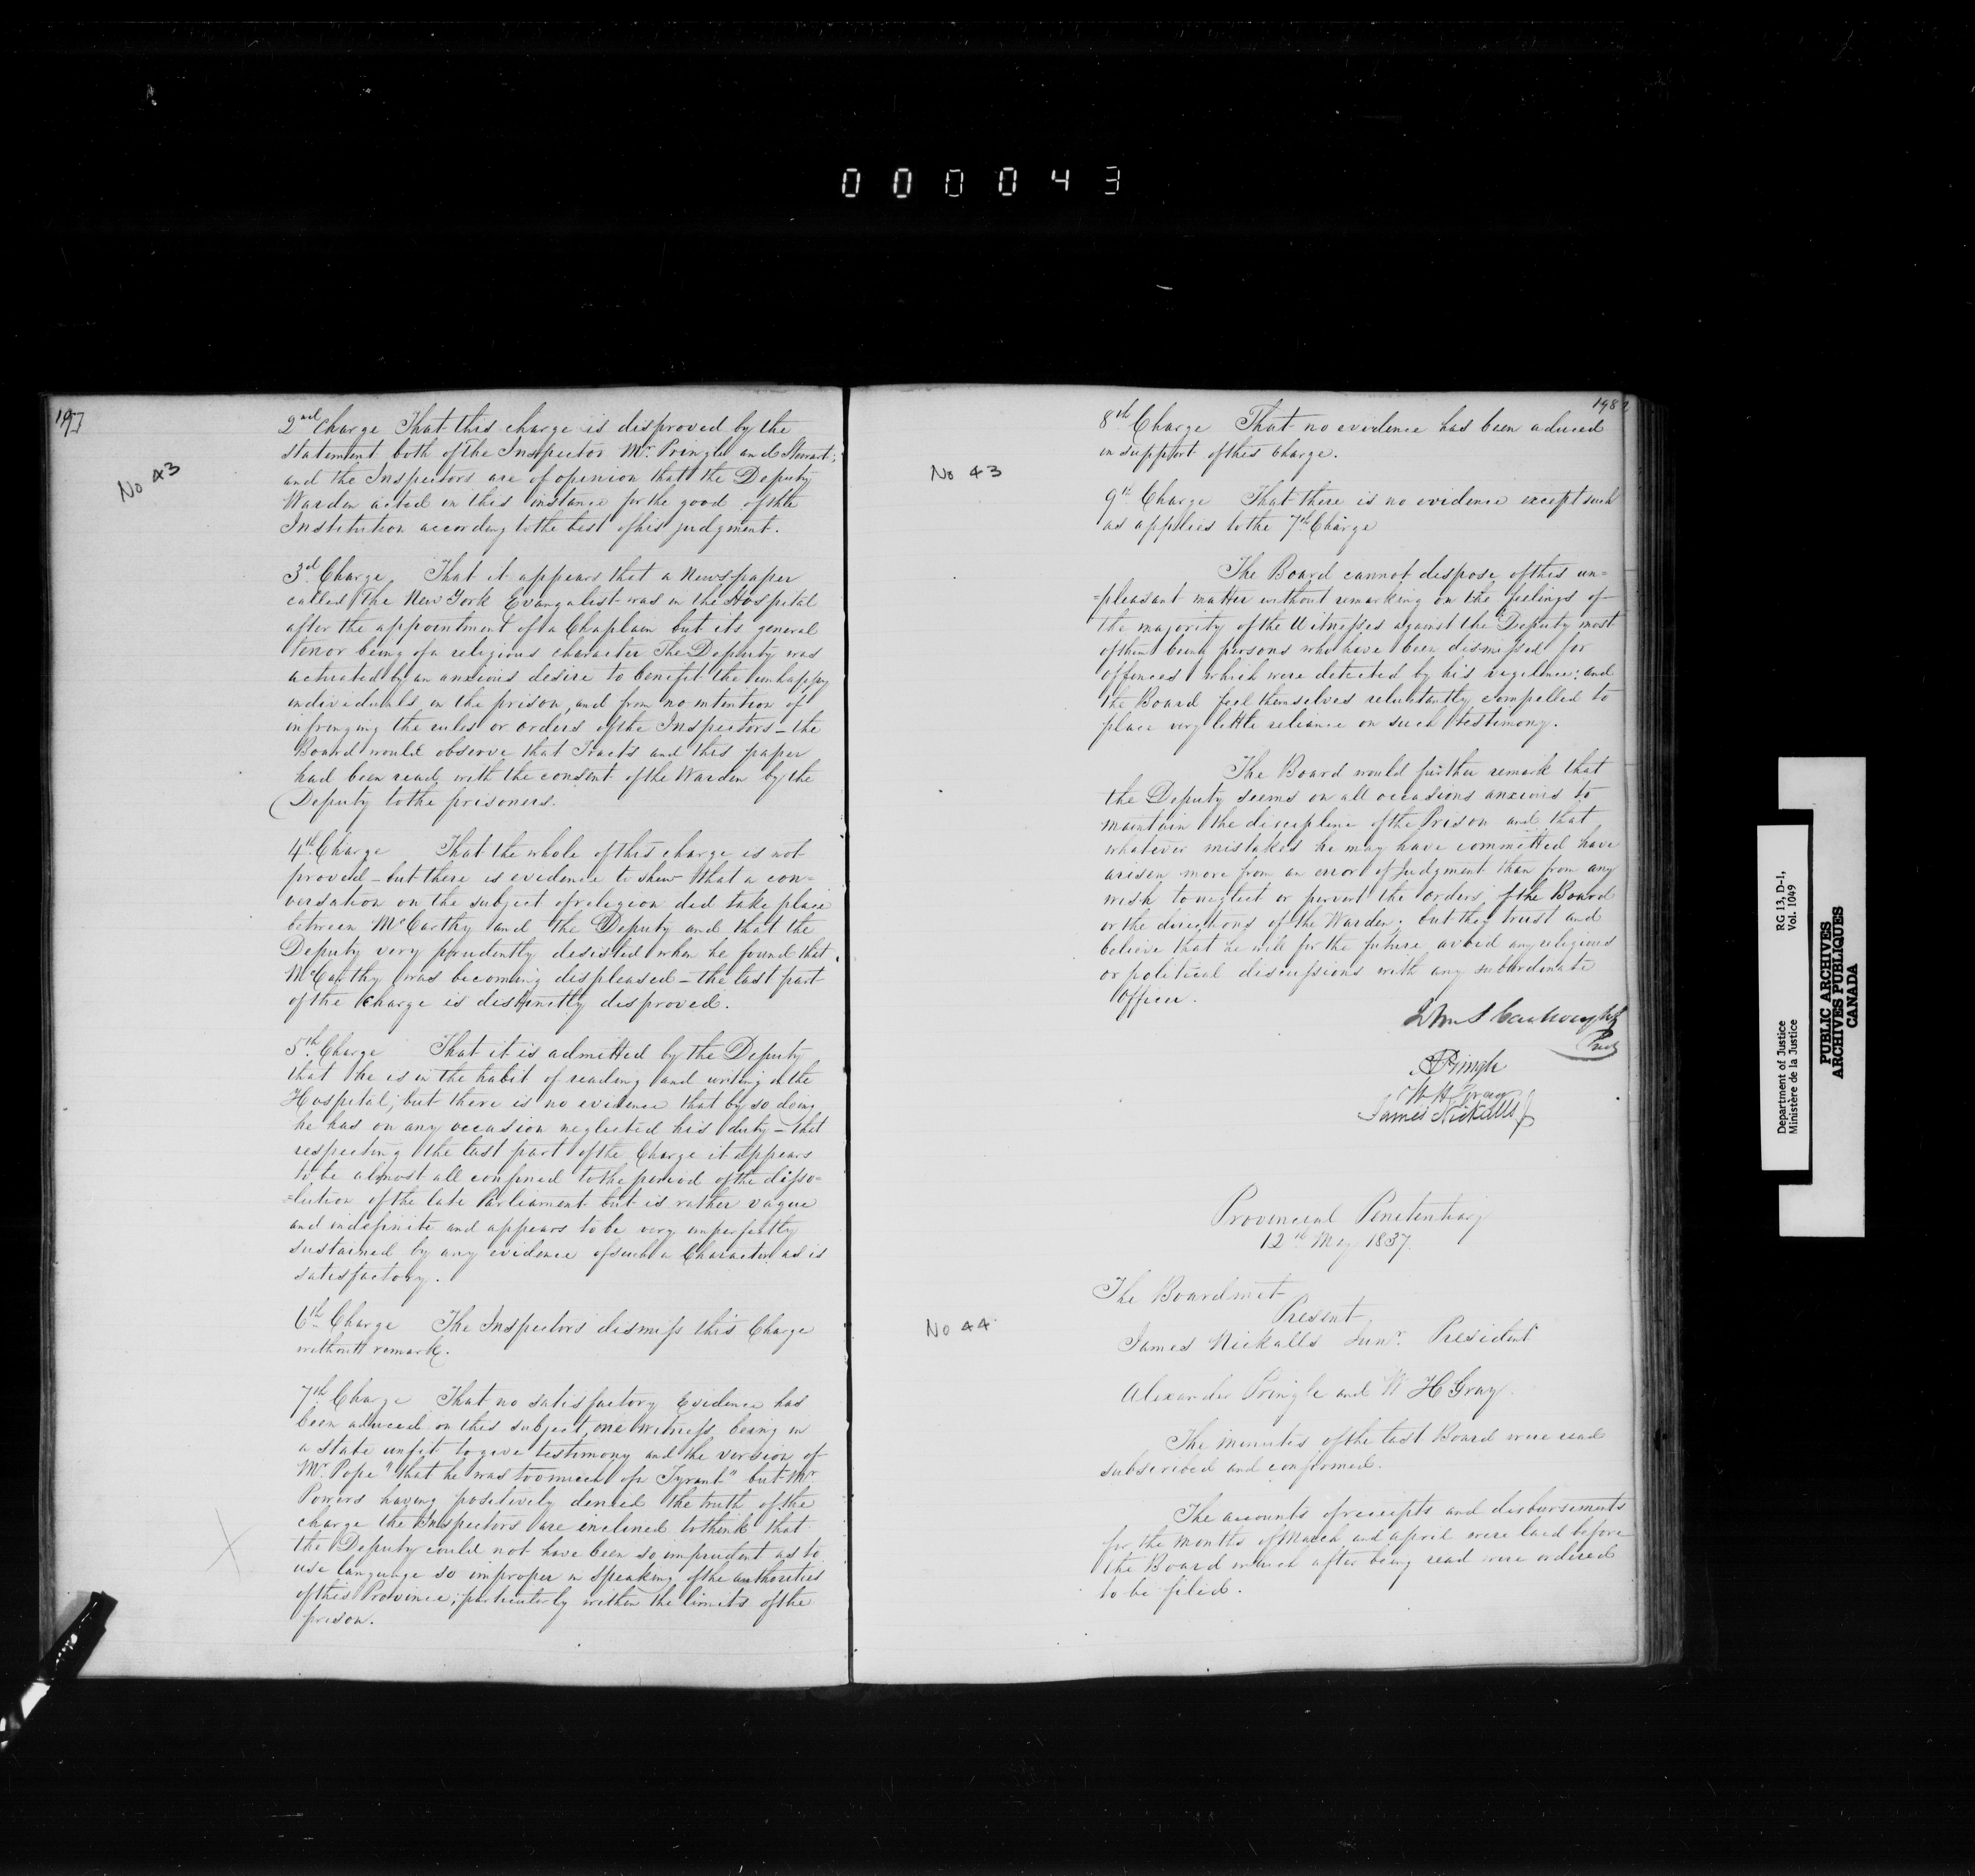 000043
197
No 43
2nd Charge That this charge is disproved by the
statement both of the Inspector Mr. Pringle and Stewart;
and the Inspectors are of opinion that the Deputy
Warden acted in this instance for the good of the
Institution according to the best of his judgment.
3d Charge That it appears that a Newspaper
called the New York Evangalist was in the Hospital
after the appointment of a Chaplain but its general
tenor being of a religious character The Deputy was
actuated by an anxious desire to benefit the unhappy
individuals in the prison, and from no intention of
infringing the rules or orders of the Inspectors - the
Board would observe that Tracts and this paper
had been read with the consent of the Warden by the
Deputy to the prisoners.
4th Charge That the whole of this charge is not
proved - but there is evidence to shew that a con=
versation on the subject of religion did take place
between McCarthy and the Deputy and that the
Deputy very prudently desisted when he found that
McCarthy was becoming displeased - the last part
of the Charge is distinctly disproved.
5th Charge That it is admitted by the Deputy
that he is in the habit of reading and writing in the
Hospital; but there is no evidence that by so doing
he has on any occasion neglected his duty - that
respecting the last part of the Charge it appears
to be almost all confined to the period of the disso=
=lution of the late Parliament but is rather vague
and indefinite and appears to be very imperfectly
sustained by any evidence of such a Character as is
satisfactory.
6th Charge The Inspectors dismiss this Charge
without remark.
7th Charge That no satisfactory Evidence has
been aduced on this subject, one witness being in
a state unfit to give testimony and the version of
Mr. Pope "that he was too much of a Tyrant" but Mr.
Powers having positively denied the truth of the
charge the Inspectors are inclined to think that
the Deputy could not have been so imprudent as to
use language so improper in speaking of the authorities
of this Province; particularly within the limits of the
prison.
198
No 43
8th Charge That no evidence has been aduced
in support of this Charge.
9th Charge That there is no evidence except such
as applies to the 7th Charge
The Board cannot dispose of this un=
=pleasant matter without remarking on the feelings of
the majority of the Witnesses against the Deputy most
of them being persons who have been dismissed for
offences which were detected by his vigilence: and
the Board feel themselves reluctantly compelled to
place very little reliance on such testimony.
The Board would further remark that
the Deputy seems on all occasions anxious to
maintain the discipline of the Prison and that
whatever mistakes he may have committed have
arisen more from an error of Judgment than from any
wish to neglect or pervert the orders of the Board
or the directions of the Warden; but they trust and
believe that he will for the future avoid any religious
or political discussions with any subordinate
Officer.
John S Cartwright
Pres
A Pringle
W H Gray
James Nickalls J
Provincial Penitentiary
12th May 1837.
The Board met
Present
No 44
James Nickalls Junr. President
Alexander Pringle and W H Gray.
The minutes of the last Board were read
subscribed and confirmed.
The accounts of receipts and disbursements
for the months of March and April were laid before
the Board which after being read were ordered
to be filed.
Department of Justice
Ministère de la Justice
RG 13, D-1,
Vol. 1049
PUBLIC ARCHIVES
ARCHIVES PUBLIQUES
CANADA